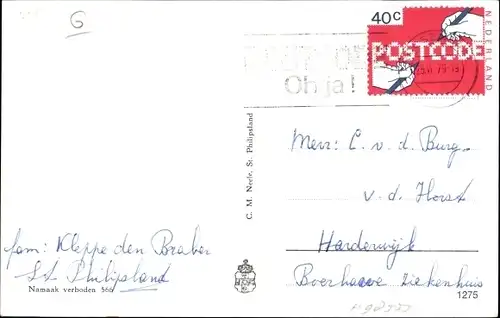 G
40c
NEDERLAND
POSTCODE
POSTCODE
Oh ja!
C. M. Neele, St. Philipsland
Mevr: C. v. d. Burg-
v. d. Horst
Harderwijk
Boerhaave Ziekenhuis
fam: Kleppe den Braber
St Philipsland
Namaak verboden 566
1275